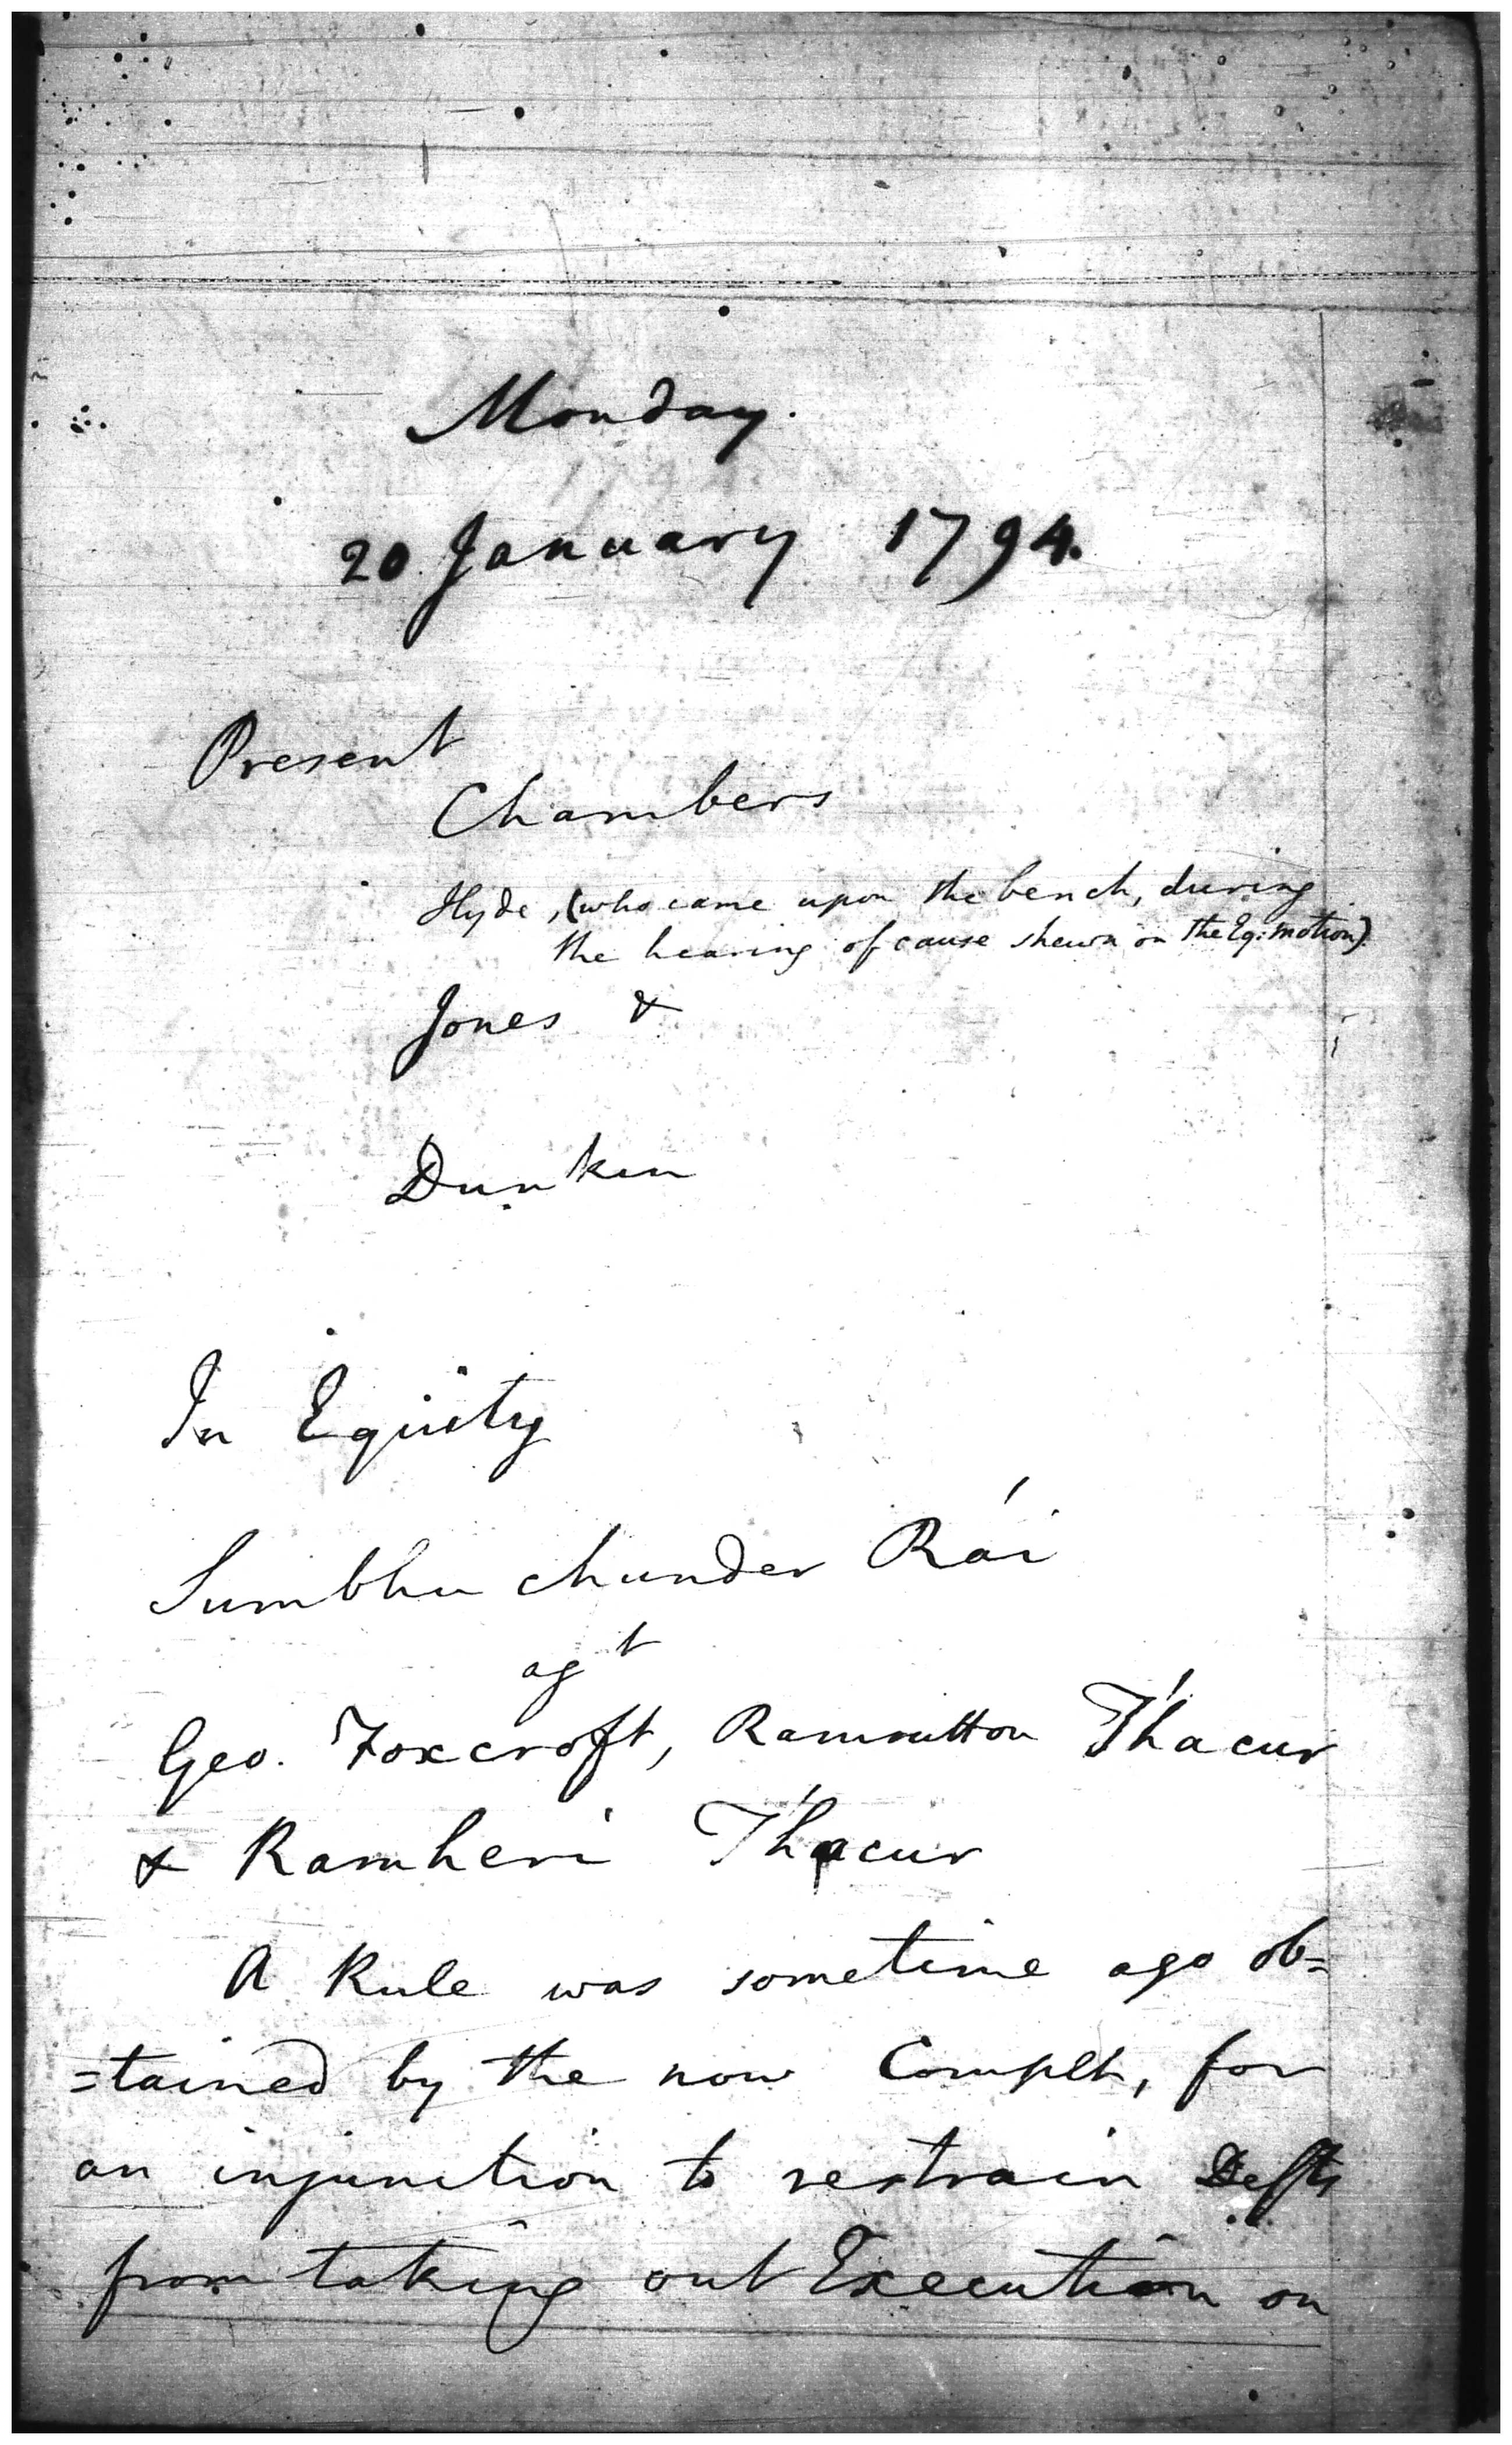 Monday.
20 January 1794.
Present
Chambers
Hyde, (who came upon the bench, during
the hearing of cause shewn on the Eq: motion).
Jones &
Dunkin
In Equity
Sumbhu chunder Rái
agt
Geo. Foxcroft, Ramruttton Thacur
& Ramheri Thacur
A Rule was sometime ago ob=
=tained by the now Complt, for
an injunction to restrain Defts
from taking out Execution on